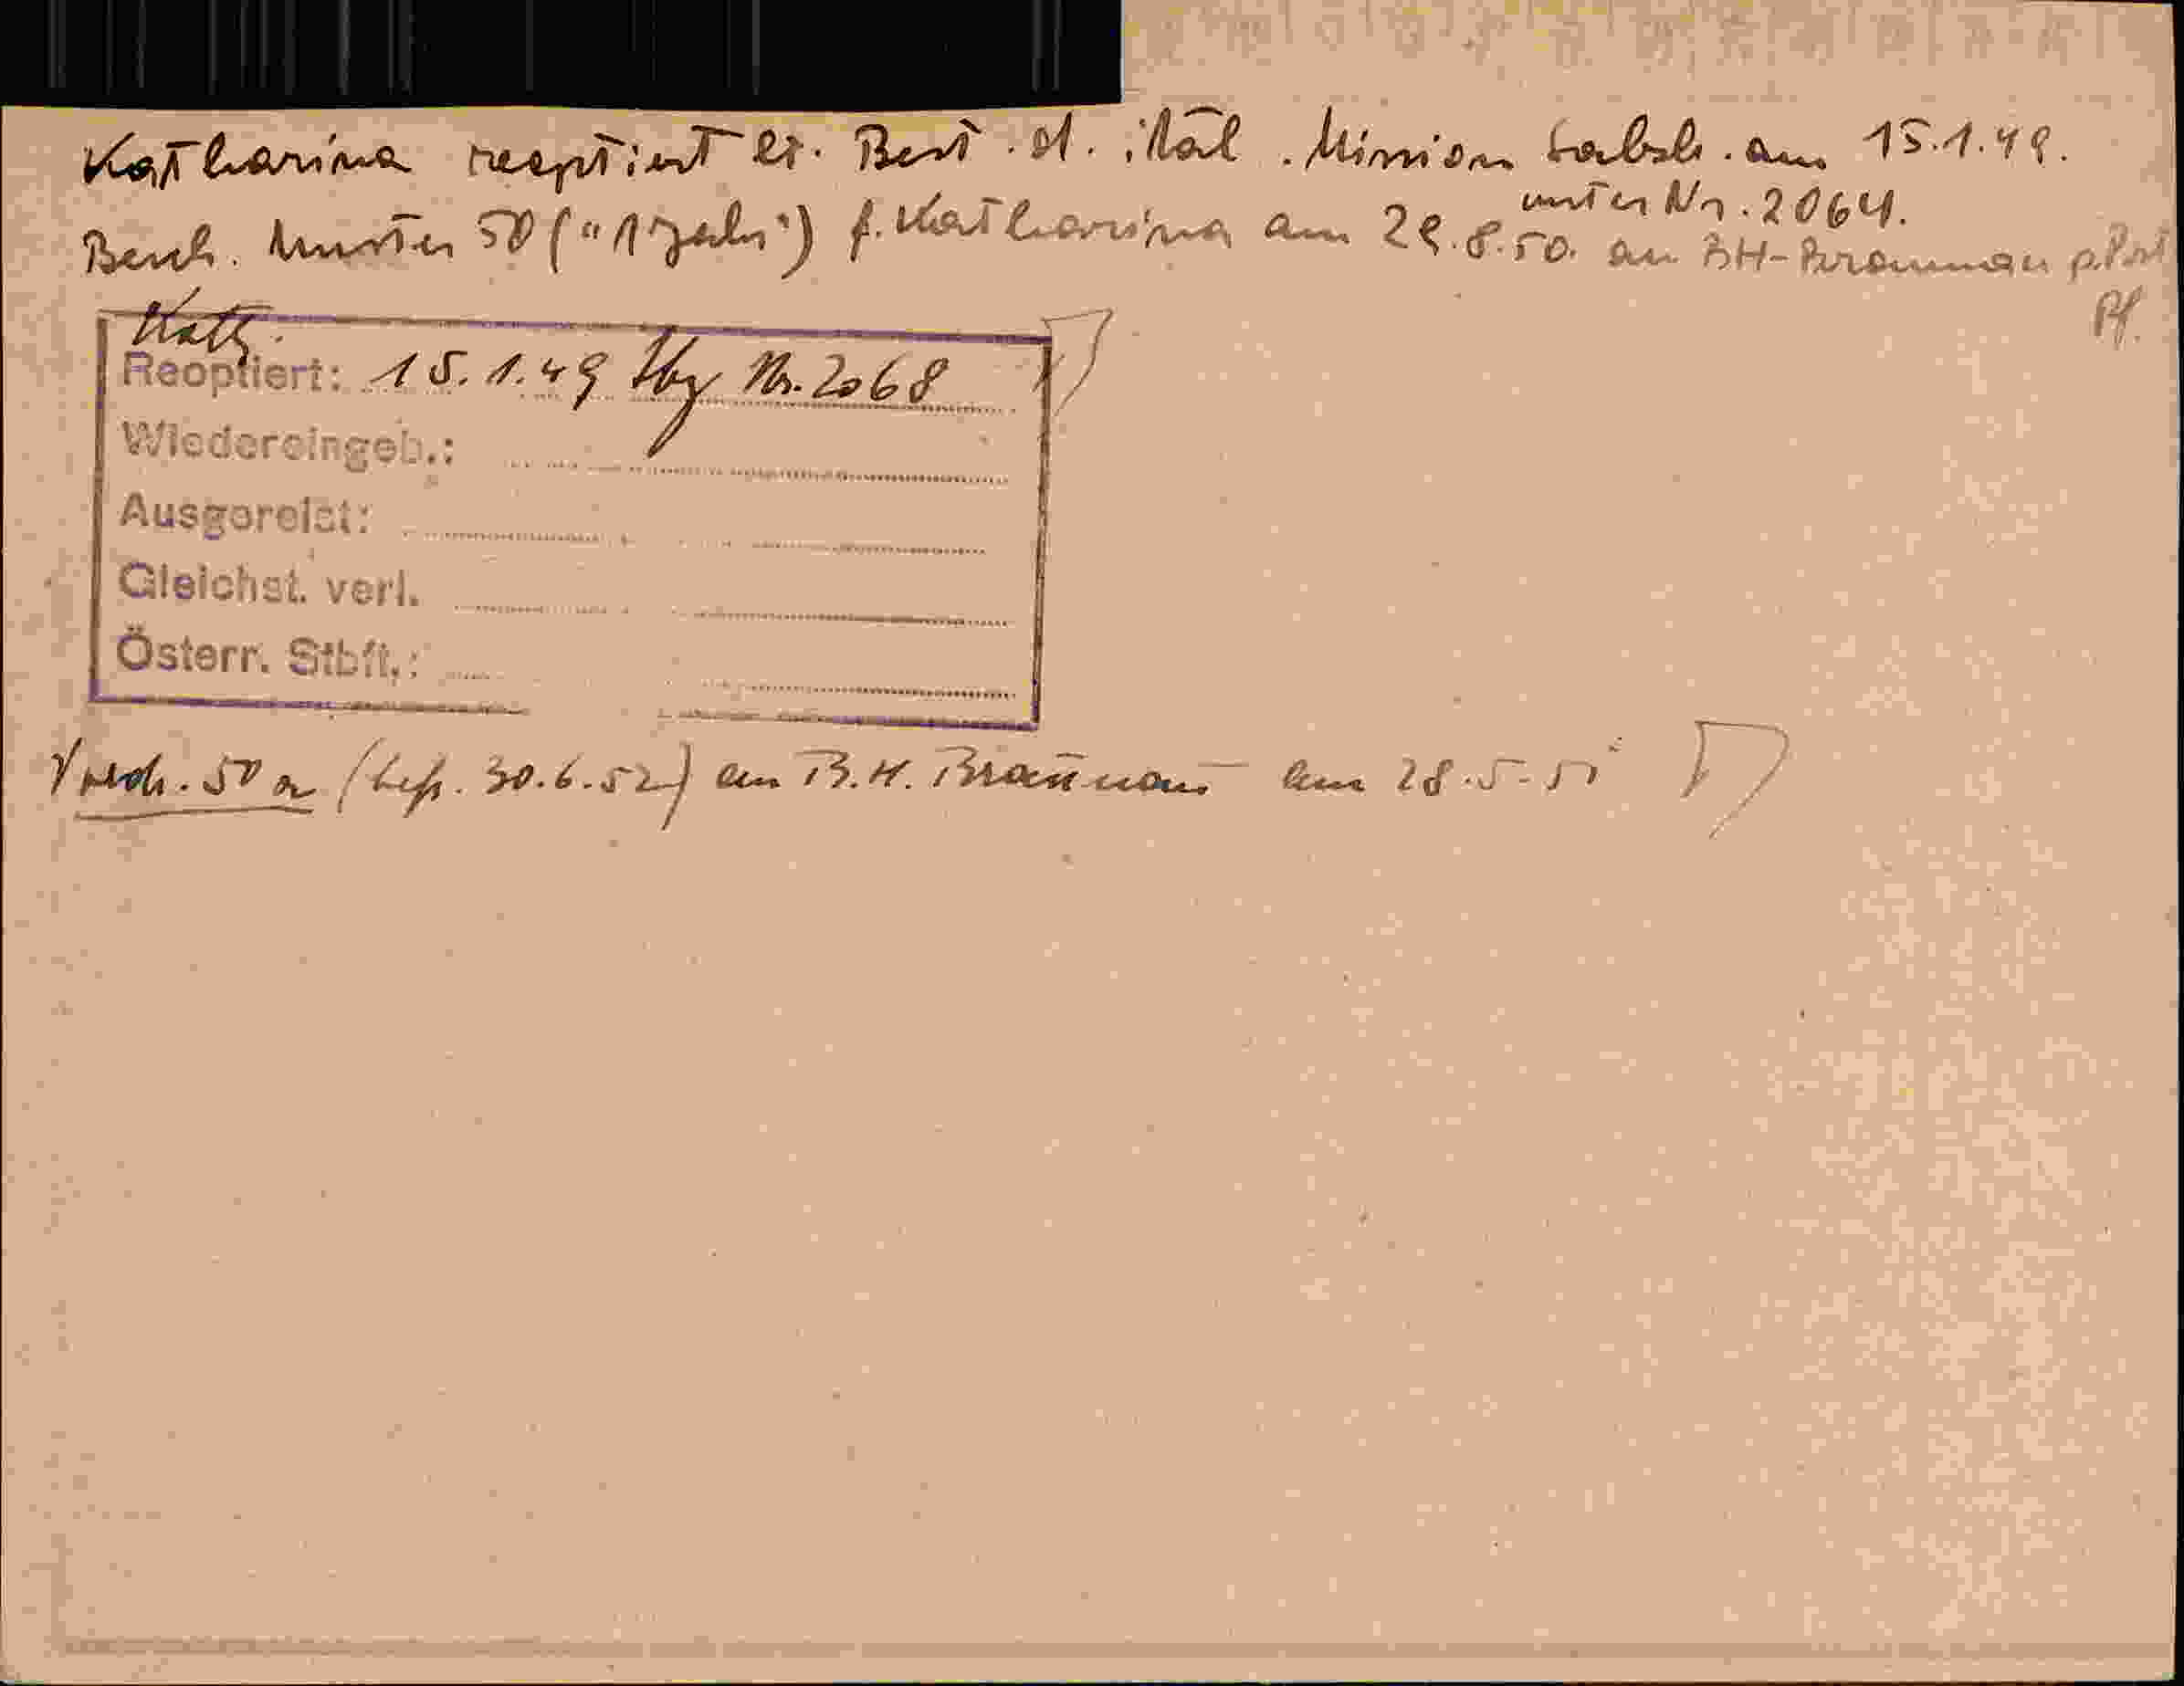 Katharina reoptiert lt. Best. d. ital. Mission Salzb. am 15.1.49.
unter Nr. 2064.
Besch. Muster 50 ("1 Jahr") f. Katharina am 29.8.50. an BH-Braunau p. Post
Pf.
Kath.
Reoptiert: 15.1.49 Sbg Nr. 2068
Wiedereingeb.:
Ausgereist:
Gleichst. verl.
Österr. Stbft.:
50 a (bef. 30.6.52) an B.H. Braunau am 28.5.51